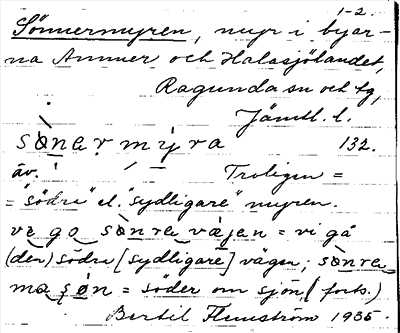 1-2.
Sönnermyren, myr i byar-
na Ammer och Halasjölandet,
Ragunda sn och tg,
Jämtl. l.
sònermýra 132.
äv. Troligen =
= "södra" el. "sydligare" myren.
ve go sònre vàjen = vi gå
(den) södra [sydligare] vägen; sònre
ma søn = söder om sjön, (forts.)
Bertil Flemström 1935.